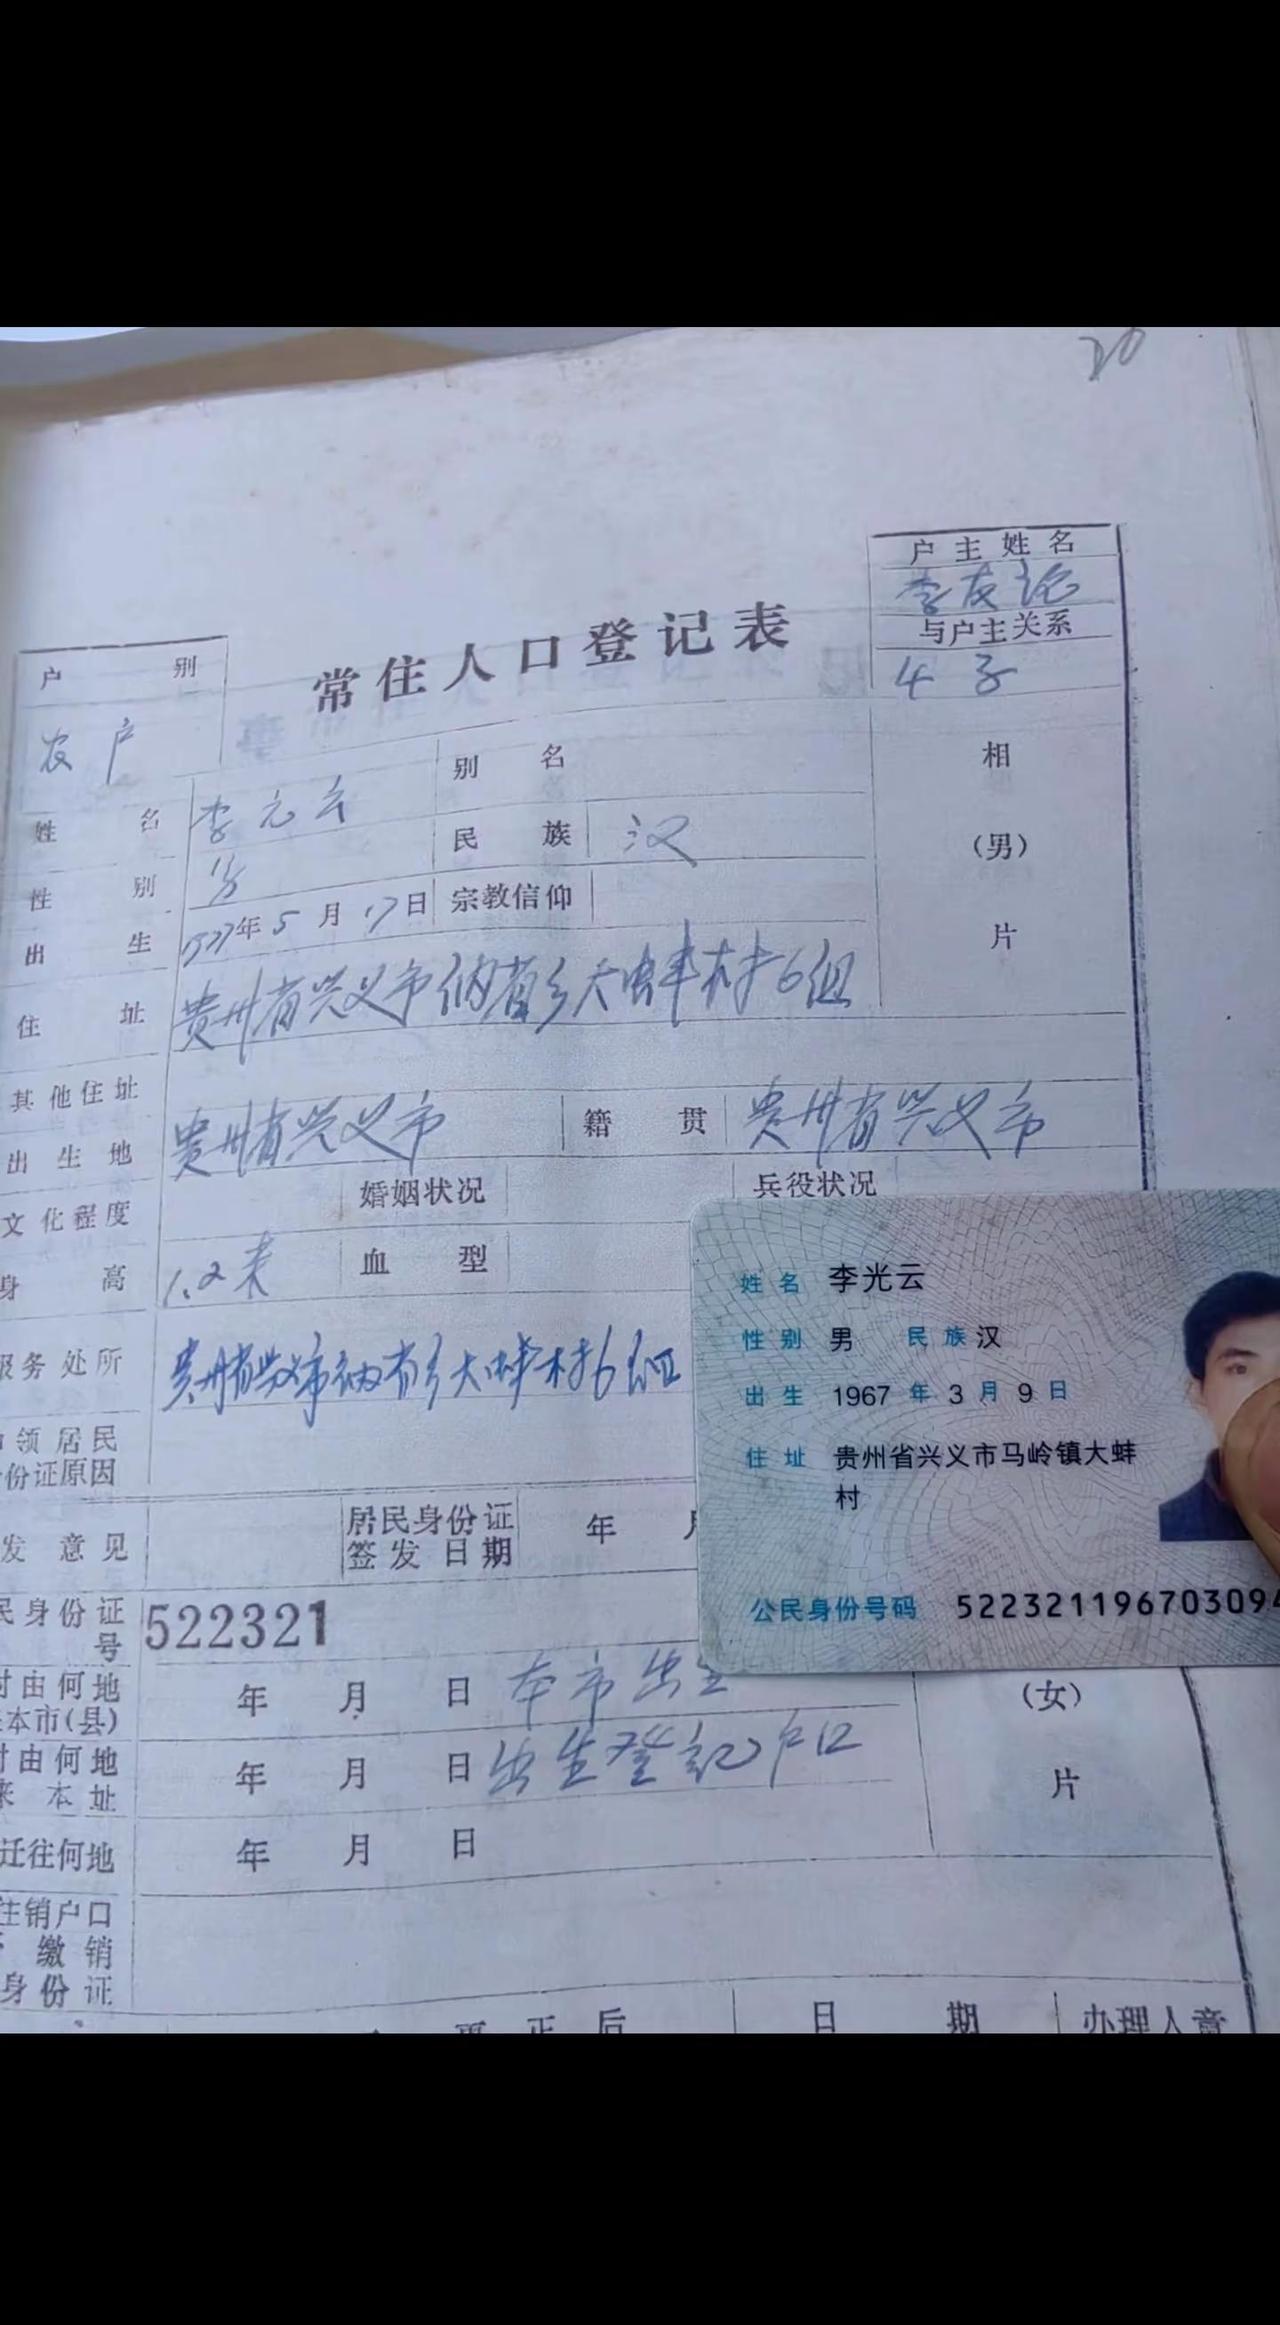 20
户主姓名
李友论
与户主关系
4子
常住人口登记表
户别
农户
姓名 李元云 别名
性别 男 民族 汉
出生 1977年5月17日 宗教信仰
相
(男)
片
住址 贵州省兴义市纳省乡大蚌村6组
其他住址
出生地 贵州省兴义市 籍贯 贵州省兴义市
文化程度 婚姻状况 兵役状况
身高 1.2米 血型
服务处所 贵州省兴义市纳省乡大蚌村6组
领居民
份证原因
发意见 居民身份证签发日期 年 月
民身份证号 522321
时由何地
本市(县) 年 月 日 本市出生
时由何地
来本址 年 月 日 出生登记户口
迁往何地 年 月 日
注销户口
缴销
身份证
(女)
片
更正后 日期 办理人章
姓名 李光云
性别 男 民族 汉
出生 1967年3月9日
住址 贵州省兴义市马岭镇大蚌
村
公民身份号码 52232119670309